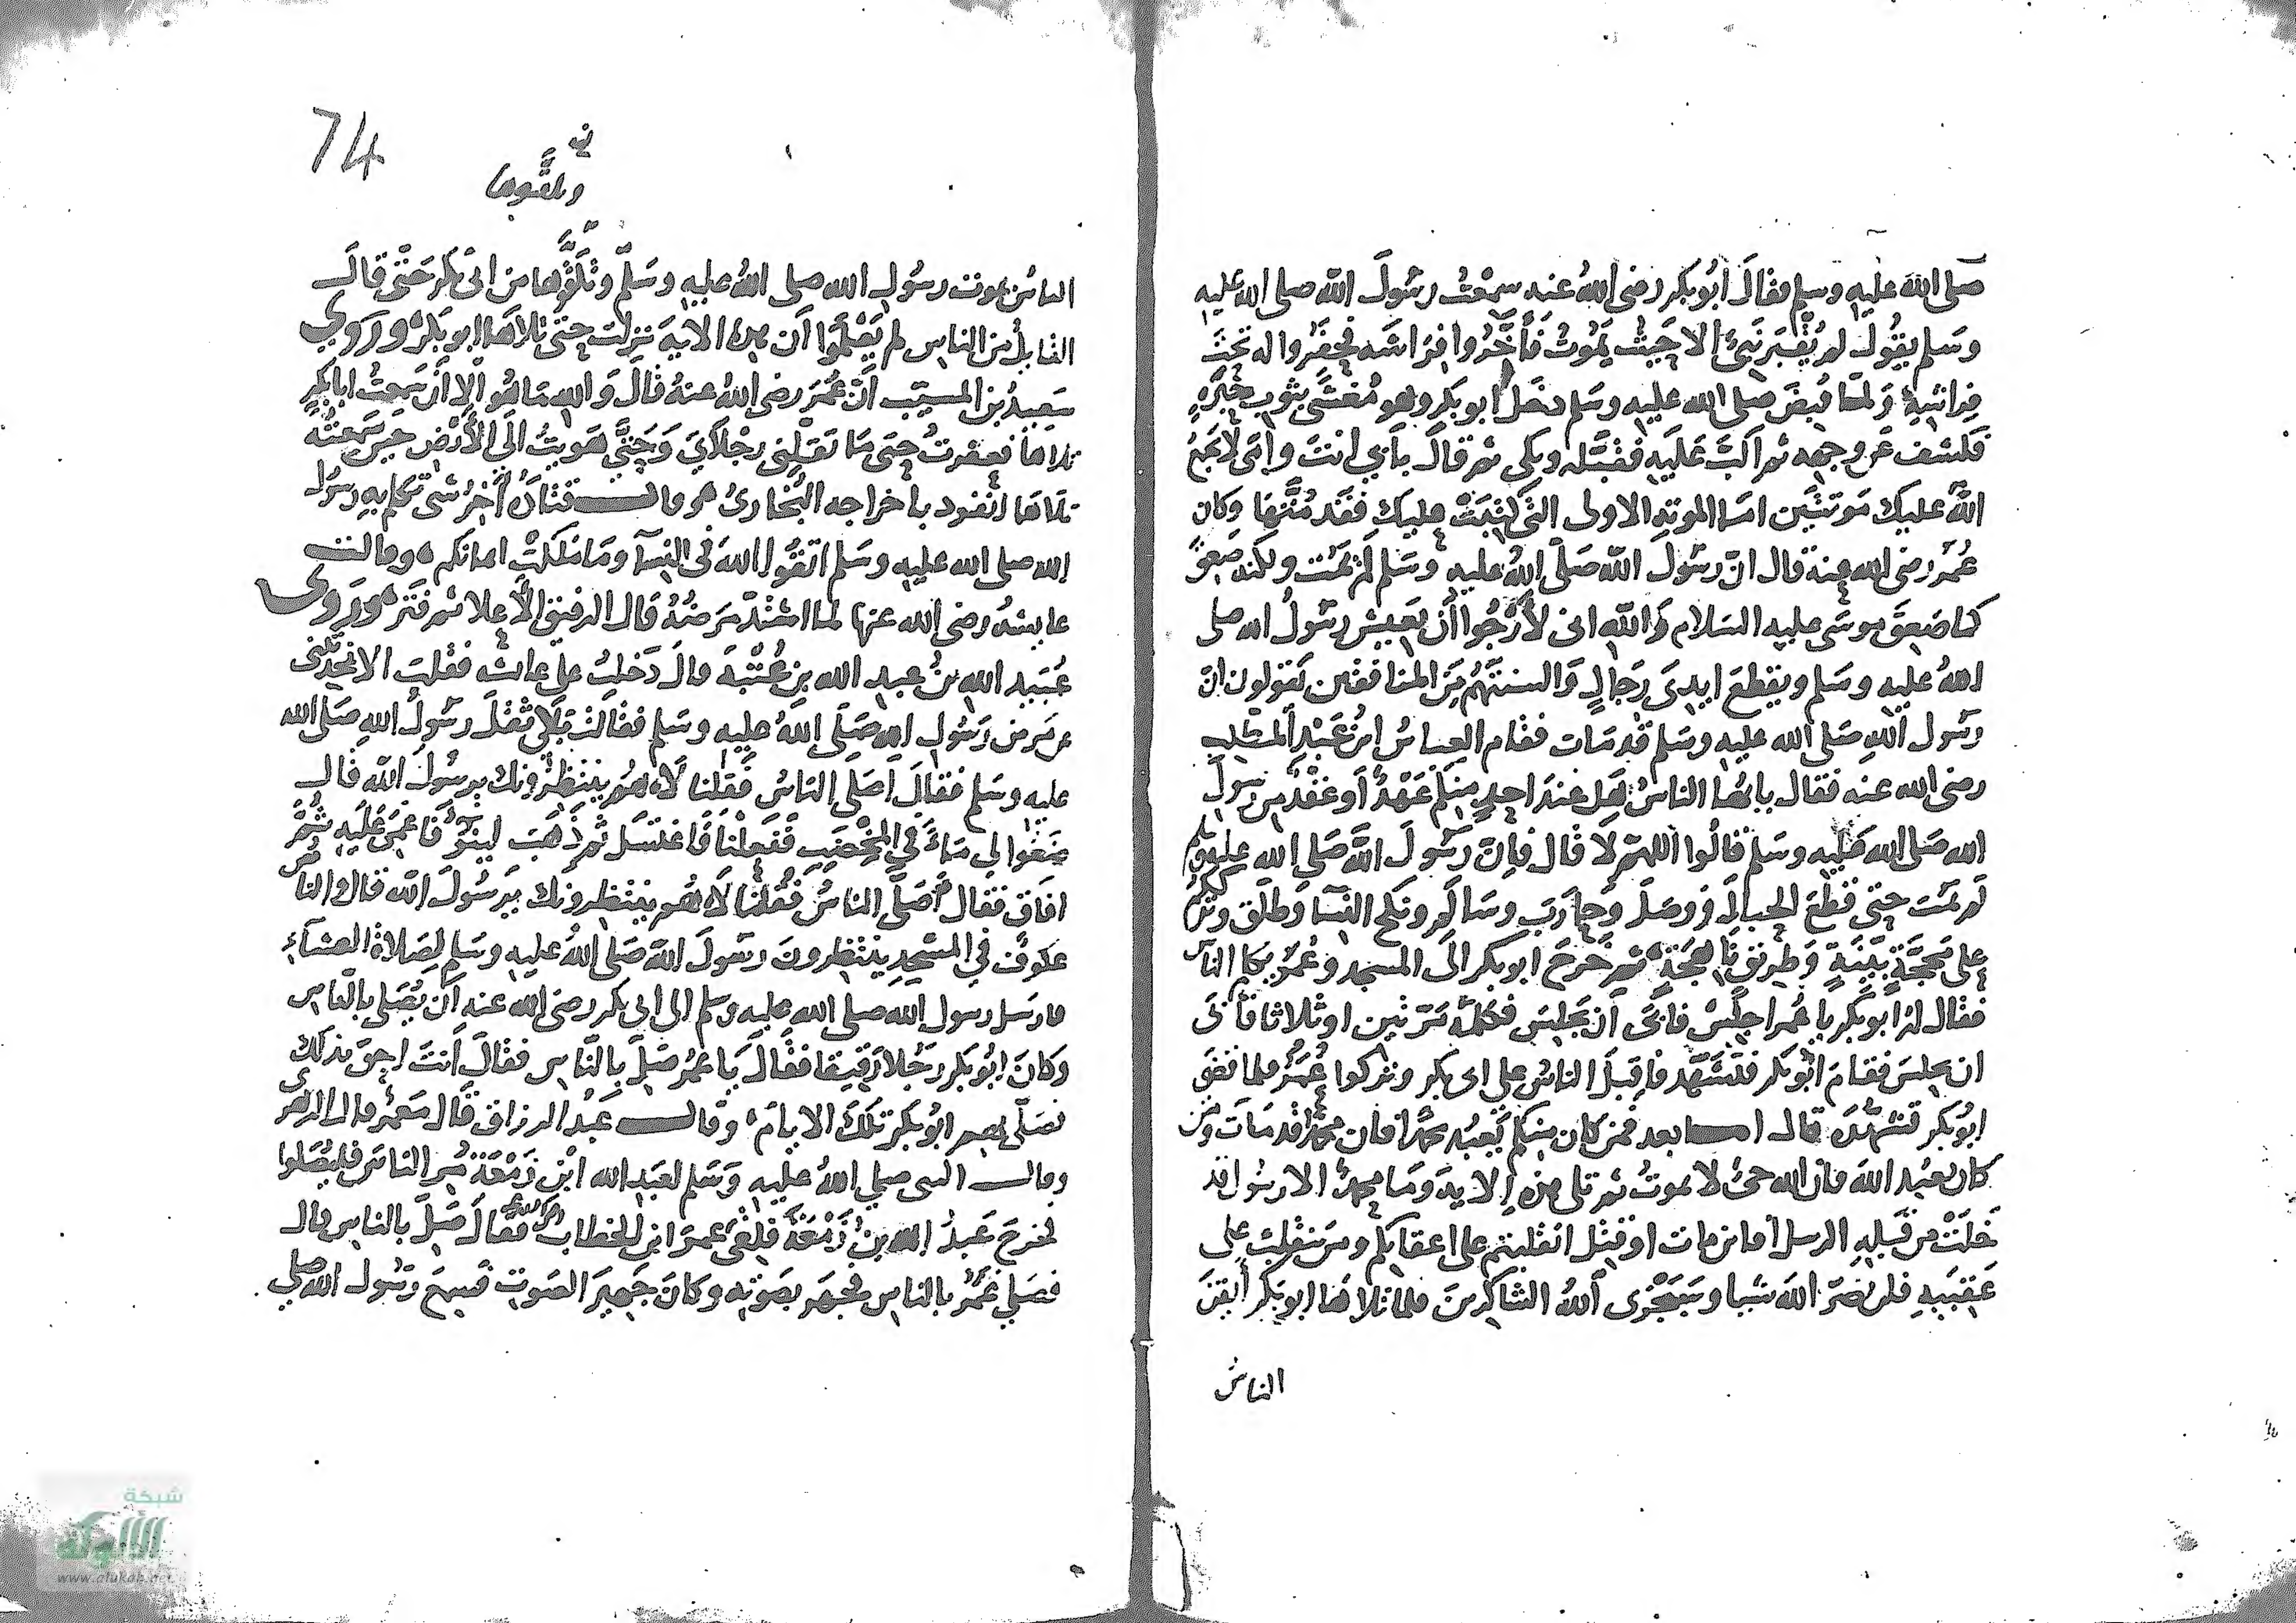 صلى الله عليه وسلم فقال أبو بكر رضى الله عنه سمعت رسول الله صلى الله عليه
وسلم يقول لم يُقبر نبىٌ الا حيث يموت فأخّروا فراشه فحفروا له تحت
فراشه ولما قبض صلى الله عليه وسلم دخل ابو بكر وهو مغشى بثوب حبره
فكشف عن وجهه ثم اكبّ عليه فقبّله وبكى ثم قال بأبي انت وامى لا يجمع
الله عليك موتتين اما الموته الاولى التى كتبت عليك فقد متّها وكان
عُمر رضى الله عنه قال ان رسول الله صلى الله عليه وسلم لم يمت ولكنه صعق
كما صعق موسى عليه السلام والله انى لأرجوا أن يعيش رسول الله صلى
الله عليه وسلم ويقطع ايدى رجالٍ والسنتهم من المنافقين يقولون ان
رسول الله صلى الله عليه وسلم قد مات فقام العباس ابن عبد المطلب
رضى الله عنه فقال يايها الناس هل عند احدٍ منكم عهدٌ أو عقدٌ من رسول
الله صلى الله عليه وسلم قالوا اللهم لا قال فإن رسول الله صلى الله عليه وسلم
لم يمت حتى قطع الحبال ثم ووصل وحارب وسالم ونكح النسا وطلق وترككم
على محجّةٍ بينةٍ وطريق ناهجةٍ ثم خرج ابو بكر الى المسجد وعمر يكلم الناس
فقال له أبو بكر يا عمر اجلس فابى أن يجلس فكلمه مرتين او ثلاثا فأبى
ان يجلس فقام ابو بكر فتشهد فاقبل الناس على ابى بكر وتركوا عمر فلما قضى
ابو بكر تشهّده قال اما بعد فمن كان منكم يعبد محمدا فان محمدا قد مات ومن
كان يعبد الله فان الله حىٌ لا يموت ثم تلى هذه الاية وما محمدٌ الا رسول قد
خلت من قبله الرسل أفاين مات او قتل انقلبتم على اعقابكم ومن ينقلب على
عقبيه فلن يضرّ الله شيا وسيجزى الله الشاكرين فلما تلاها ابو بكر أيقن
الناس
74
وتلقوها
الناس بموت رسول الله صلى الله عليه وسلم وتلقّوها من ابى بكر حتى قال
القايل من الناس لم يعلموا أن هذه الاية نزلت حتى تلاها ابو بكر وروي
سعيد بن المسيّب أن عمر رضى الله عنه قال والله ما هو الا أن سمعت ابا بكر
تلاها فعقرت حتى ما تقلنى رجلاي وحتى هويت الى الأرض حين سمعته
تلاها انفرد باخراجه البخارى وقال قتادة آخر شى تكلم به رسول
الله صلى الله عليه وسلم اتقوا الله فى النسآ وما ملكت ايمانكم وقالت
عايشه رضى الله عنها لما اشتدّ مرضه قال الرفيق الأعلا ثم فتر وروى
عبيد الله بن عبد الله بن عتبة قال دخلت على عائشه فقلت الا تحدثينى
عن مرض رسول الله صلى الله عليه وسلم فقالت بلى ثقل رسول الله صلى الله
عليه وسلم فقال أصلى الناس فقلنا لا هم ينتظرونك يرسول الله قال
ضعوا لى ماءً في المخضب ففعلنا فاغتسل ثم ذهب لينوّ فاغمى عليه ثم
افاق فقال أصلى الناس فقلنا لا هم ينتظرونك يرسول الله قالوا الناس
عكوف في المسجد ينتظرون رسول الله صلى الله عليه وسلم لصلاة العشآء
فارسل رسول الله صلى الله عليه وسلم الى ابى بكر رضى الله عنه أن يصلى بالناس
وكان ابو بكر رجلا رقيقا فقال يا عمر صلّ بالناس فقال أنت احق بذلك
فصلى بهم ابو بكر تلك الايام وقال عبد الرزاق قال معمر قال الزهرى
وقال النبى صلى الله عليه وسلم لعبد الله ابن زمعة مر الناس فليصلوا
فخرج عبد الله بن زمعة فلقى عمر ابن الخطاب فقال صلّ بالناس قال
فصلى عمر بالناس فجهر بصوته وكان جهير الصوت فسمع رسول الله صلى
شبكة
الألوكة
www.alukah.net